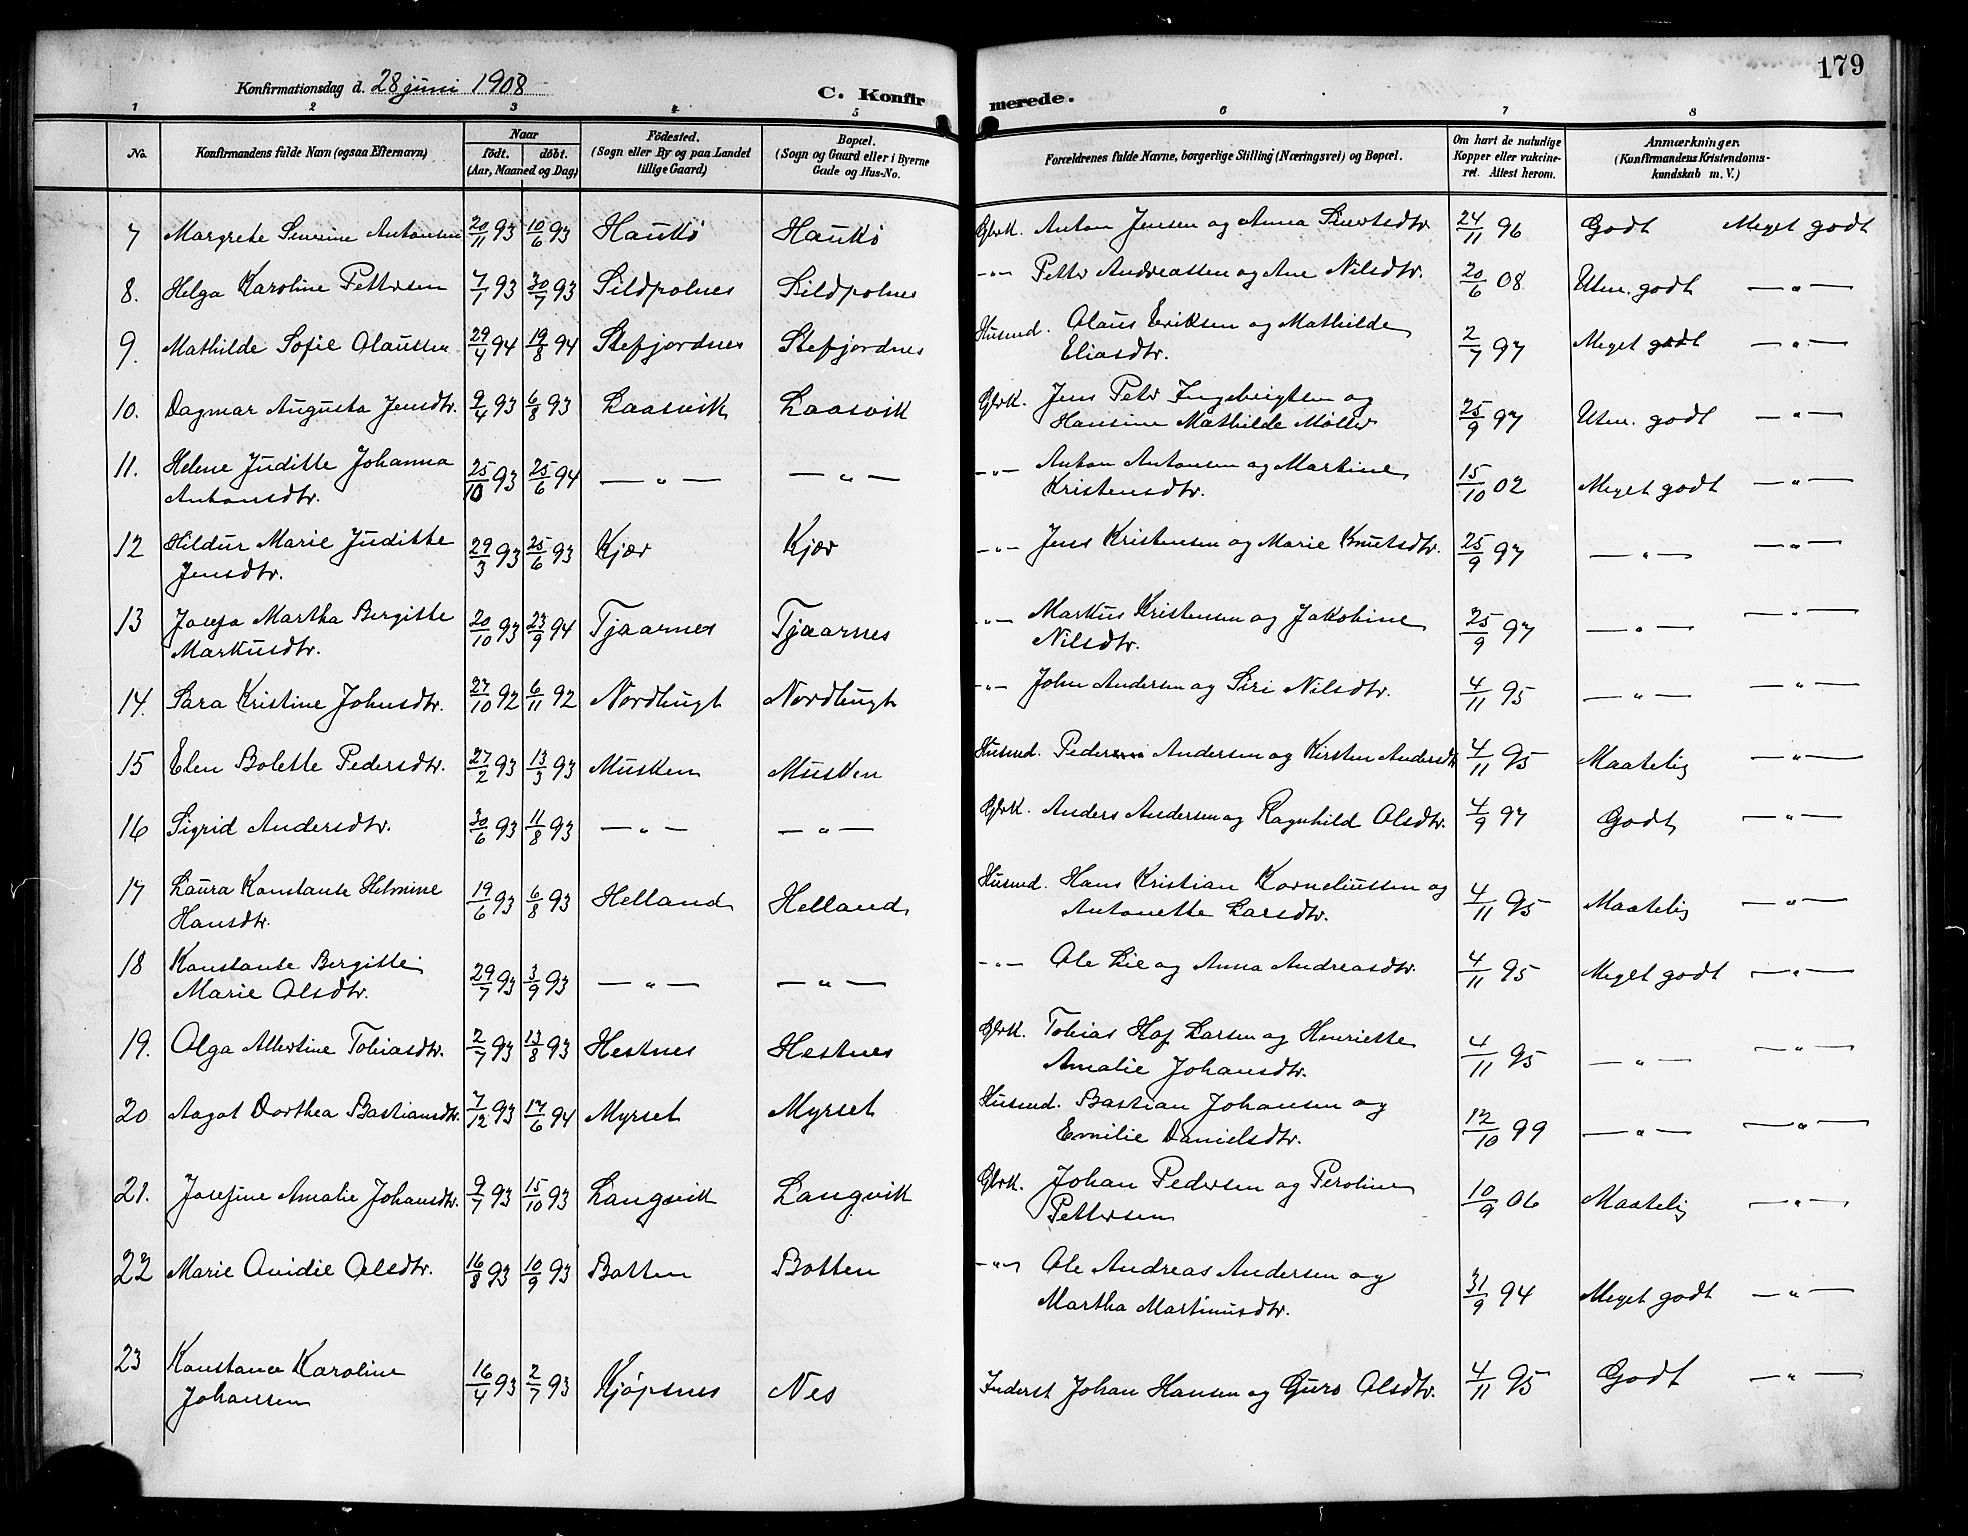 179
Konfirmationsdag d. 28 juni 1908
C. Konfirmerede.
1 2 3 4 5 6 7 8
No. Konfirmandens fulde Navn (ogsaa Efternavn) Naar født. døbt. (Aar, Maaned og Dag) Fødested. (Sogn eller By og paa Landet tillige Gaard) Bopæl. (Sogn og Gaard eller i Byerne Gade og Hus-No. Forældrenes fulde Navne, borgerlige Stilling (Næringsvei) og Bopæl. Om havt de naturlige Kopper eller vakcineret. Attest herom. Anmærkninger. (Konfirmandens Kristendomskundskab m. V.)
7 Margrete Severine Antonsen 20/11 93 10/6 93 Haukø Haukø Gbrk. Anton Jensen og Anna Sivertsdtr. 24/11 96 Godt Meget godt
8. Helga Karoline Pettersen 7/1 93 30/7 93 Sildpolnes Sildpolnes -"- Petter Andreassen og Ane Nilsdtr. 20/6 08 Utm. godt — " —
9. Mathilde Sofie Olaussen 29/4 94 19/8 94 Stefjordnes Stefjordnes Husmd. Olaus Eriksen og Mathilde
Eliasdtr. 2/7 97 Meget godt — " —
10. Dagmar Augusta Jensdtr. 9/4 93 6/8 93 Laasvik Laasvik Gbrk. Jens Peter Ingebrigtsen og
Hansine Mathilde Møller 25/9 97 Utm. godt — " —
11. Helene Juditte Johanna
Antonsdtr. 25/10 93 25/6 94 — " — — " — -"- Anton Antonsen og Martine
Kristensdtr. 15/10 02 Meget godt — " —
12 Hildur Marie Juditte
Jensdtr. 29/3 93 25/6 93 Kjær Kjær -"- Jens Kristensen og Marie Knutsdtr. 25/9 97 — " — — " —
13 Josefa Martha Bergitte
Markusdtr. 20/10 93 23/9 94 Tjaarnes Tjaarnes -"- Markus Kristensen og Jakobine
Nilsdtr. 25/9 97 — " — — " —
14. Sara Kristine Johnsdtr. 27/10 92 6/11 92 Nordbugt Nordbugt -"- John Andersen og Siri Nilsdtr. 4/11 95 — " — — " —
15 Elen Bolette Pedersdtr. 27/2 93 13/3 93 Musken Musken Husmd. Peder Andersen og Kirsten Andersdtr 4/11 95 Maatelig — " —
16 Sigrid Andersdtr. 30/6 93 11/8 93 — " — — " — Gbrk. Anders Andersen og Ragnhild Olsdtr. 4/9 97 Godt — " —
17 Laura Konstanse Helmine
Hansdtr. 19/6 93 6/8 93 Helland Helland Husmd. Hans Kristian Korneliussen og
Antonette Larsdtr. 4/11 95 Maatelig — " —
18 Konstanse Bergitte
Marie Olsdtr. 29/7 93 3/9 93 — " — — " — -"- Ole Lie og Anna Andreasdtr. 4/11 95 Meget godt — " —
19. Olga Albertine Tobiasdtr. 2/7 93 13/8 93 Hestnes Hestnes Gbrk. Tobias Hof Larsen og Henriette
Amalie Johansdtr. 4/11 95 — " — — " —
20 Aagot Dorthea Bastiansdtr. 7/12 93 17/6 94 Myrset Myrset Husmd. Bastian Johansen og
Emilie Danielsdtr. 12/10 99 — " — — " —
21. Josefine Amalie Johansdtr. 9/7 93 15/10 93 Langvik Langvik Gbrk. Johan Pedersen og Peroline
Pettersen 10/9 06 Maatelig — " —
22 Marie Ovidie Olsdtr. 16/8 93 10/9 93 Botten Botten -"- Ole Andreas Andersen og
Martha Martinusdtr. 31/9 94 Meget godt — " —
23 Konstance Karoline
Johansen 16/4 93 2/7 93 Kjøpsnes Nes Inderst Johan Hansen og Guro Olsdtr. 4/11 95 Godt — " —